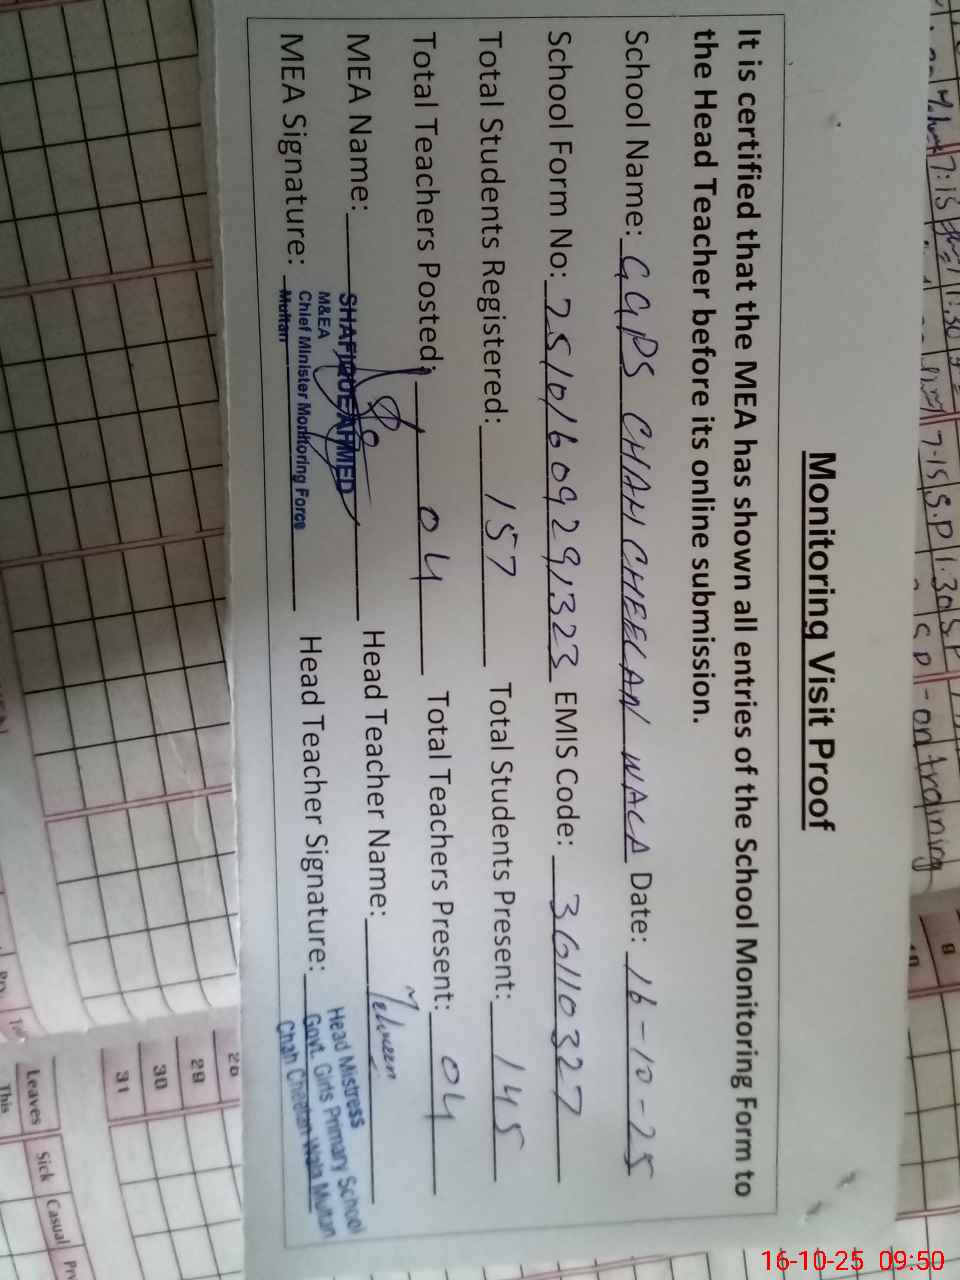 Monitoring Visit Proof
It is certified that the MEA has shown all entries of the School Monitoring Form to
the Head Teacher before its online submission.
School Name: GGPS CHAH CHEELAN WALA Date: 16-10-25
School Form No: 25101609291323 EMIS Code: 36110327
Total Students Registered: 157 Total Students Present: 145
Total Teachers Posted: 04 Total Teachers Present: 04
MEA Name: SHAFIQUE AHMED Head Teacher Name:
M&EA
Chief Minister Monitoring Force
Multan
MEA Signature: Head Teacher Signature:
Head Mistress
Govt. Girls Primary School
Chah Cheelan Wala Multan
7:15 1:30
7-15 S.P 1:30 S.P
S P - on training
28
29
30
31
Leaves Sick Casual
This
16-10-25 09:50